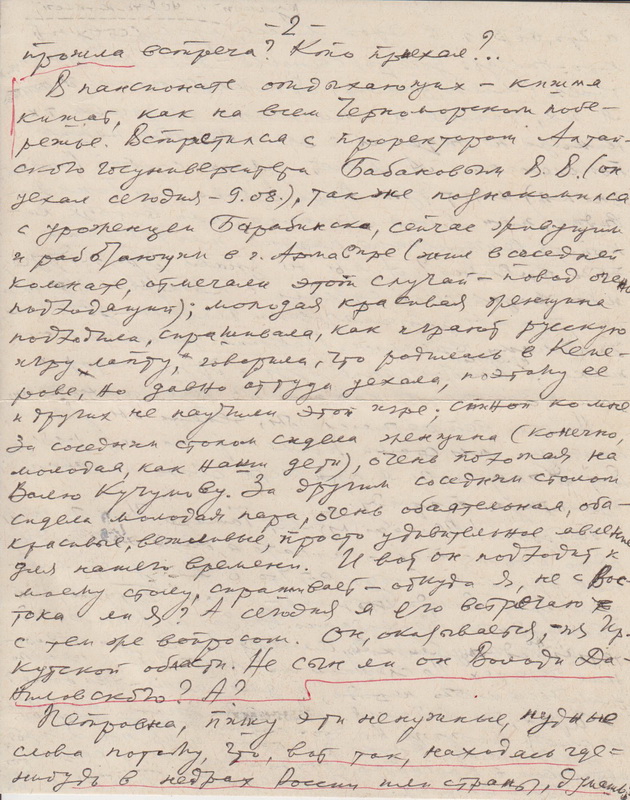 -2-
прошла встреча? Кто приехал?..
В пансионате отдыхающих – кишмя
кишат, как на всем Черноморском побе-
режье. Встретился с проректором Алтай-
ского госуниверситета Бабаковым В.В. (он
уехал сегодня – 9.08.), также познакомился
с уроженцем Барабинска, сейчас живущим
и работающим в г. Армавире (жил в соседней
комнате, отмечали этот случай – повод очень
подходящий); молодая красивая женщина
подходила, спрашивала, как играют русскую
игру лапту, говорила, что родилась в Кеме-
рове, но давно оттуда уехала, поэтому ее
и других не научили этой игре; спиной ко мне
за соседним столом сидела женщина (конечно,
молодая, как наши дети), очень похожая на
Валю Кучумову. За другим соседним столом
сидела молодая пара, очень обаятельная, оба –
красивые, вежливые, просто удивительное явление
для нашего времени. И вот он подходит к
моему столу, спрашивает – откуда я, не с Вос-
тока ли я? А сегодня я его встречаю
с тем же вопросом. Он, оказывается, – из Ир-
кутской области. Не сын ли он Володи Да-
ниловского? А?
Петровна, пишу эти ненужные, нудные
слова потому, что, вот так, находясь где-
нибудь в недрах России или страны, думаешь